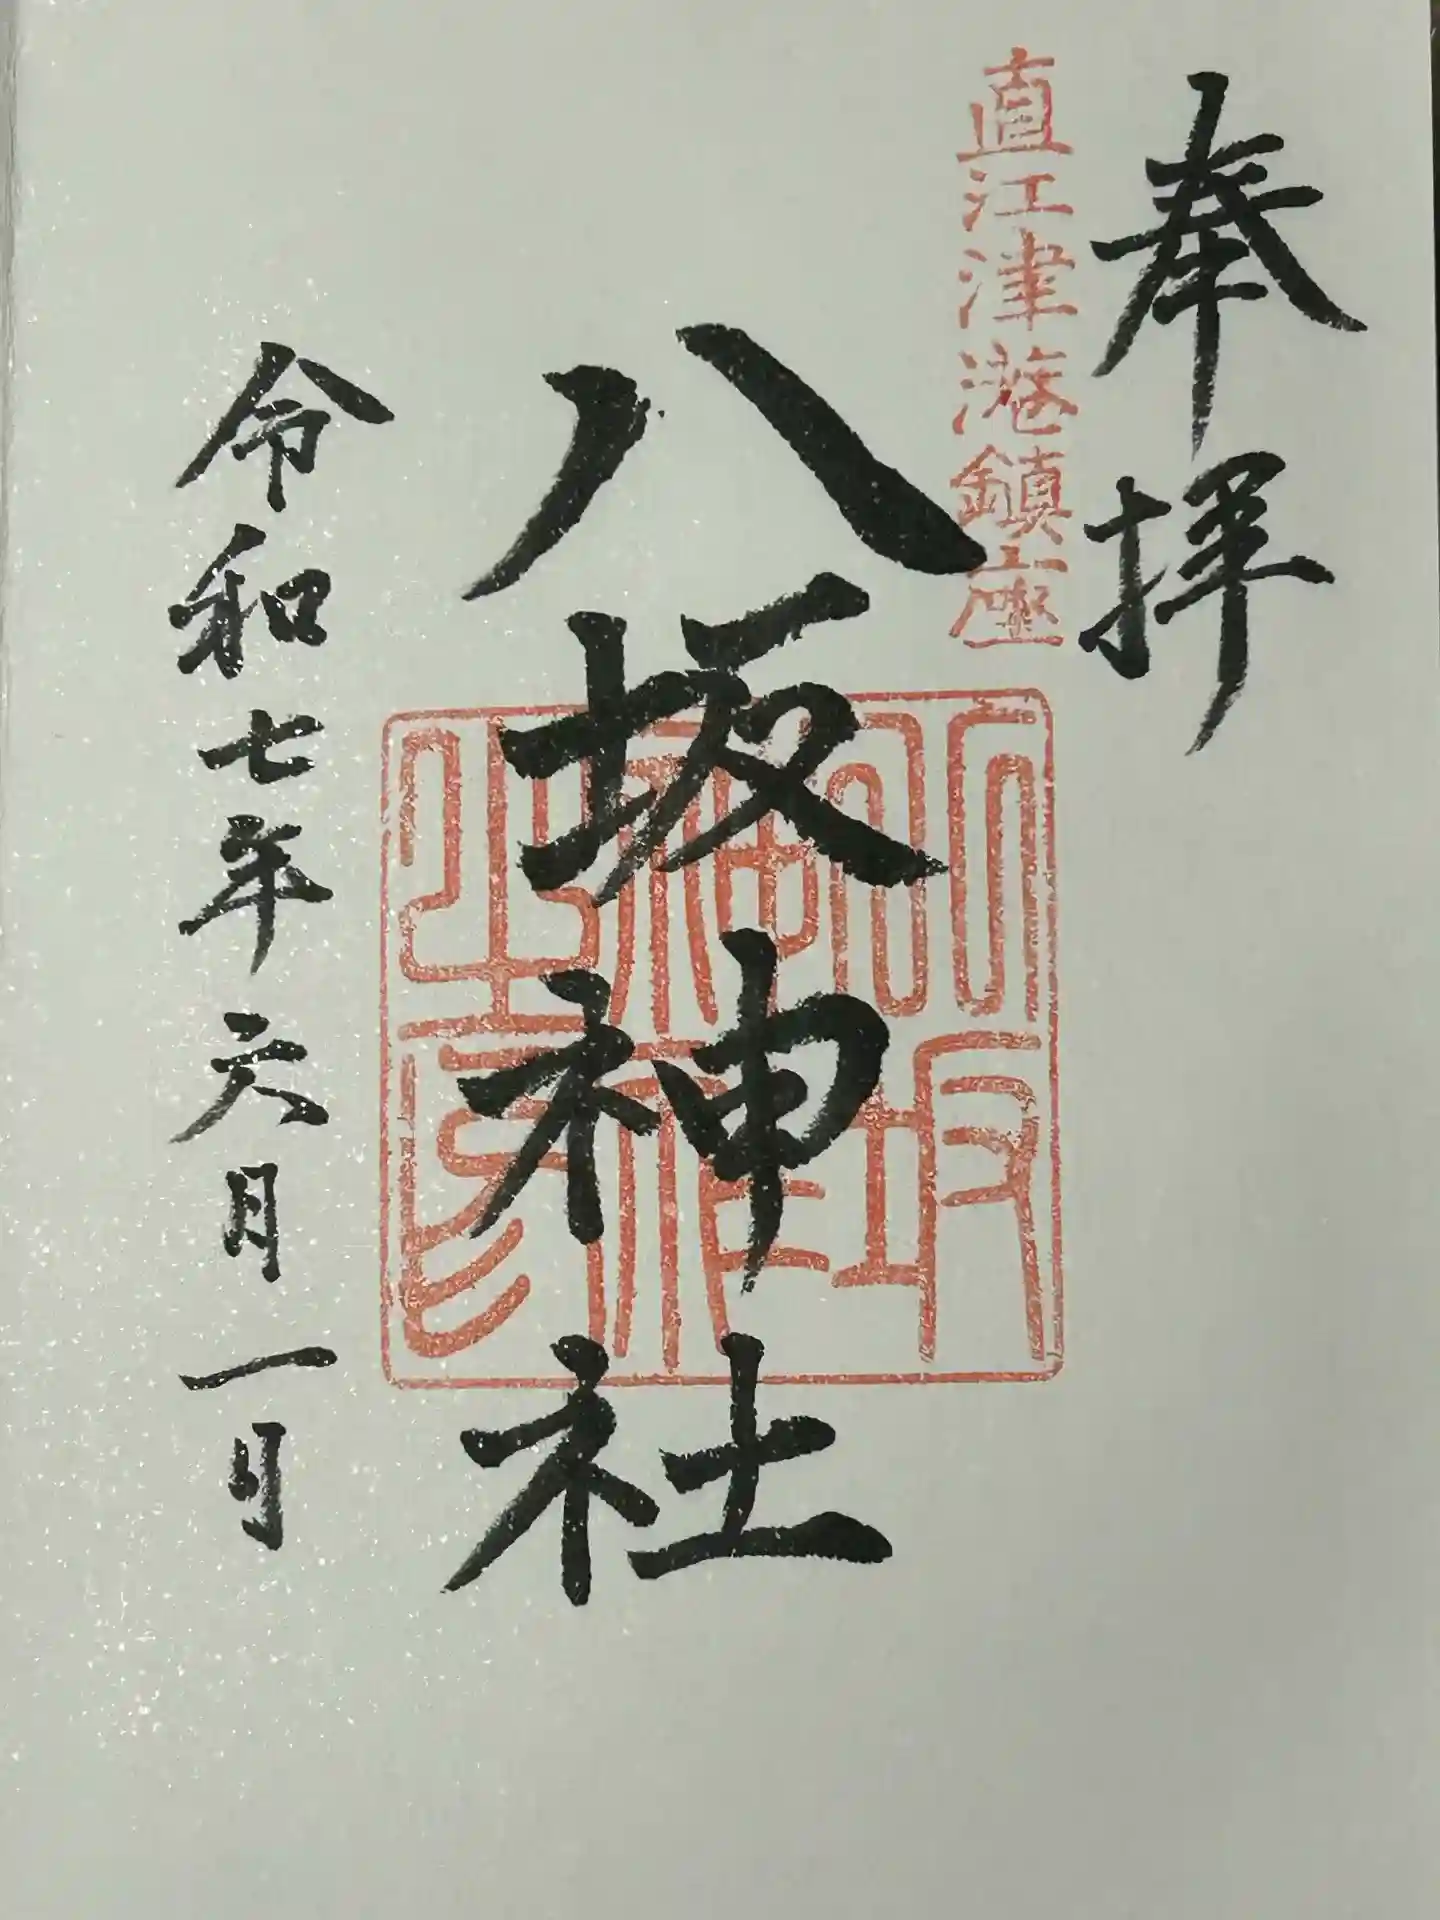 奉拝
直江津港鎮座
八坂神社
八坂神社之印
令和七年六月一日